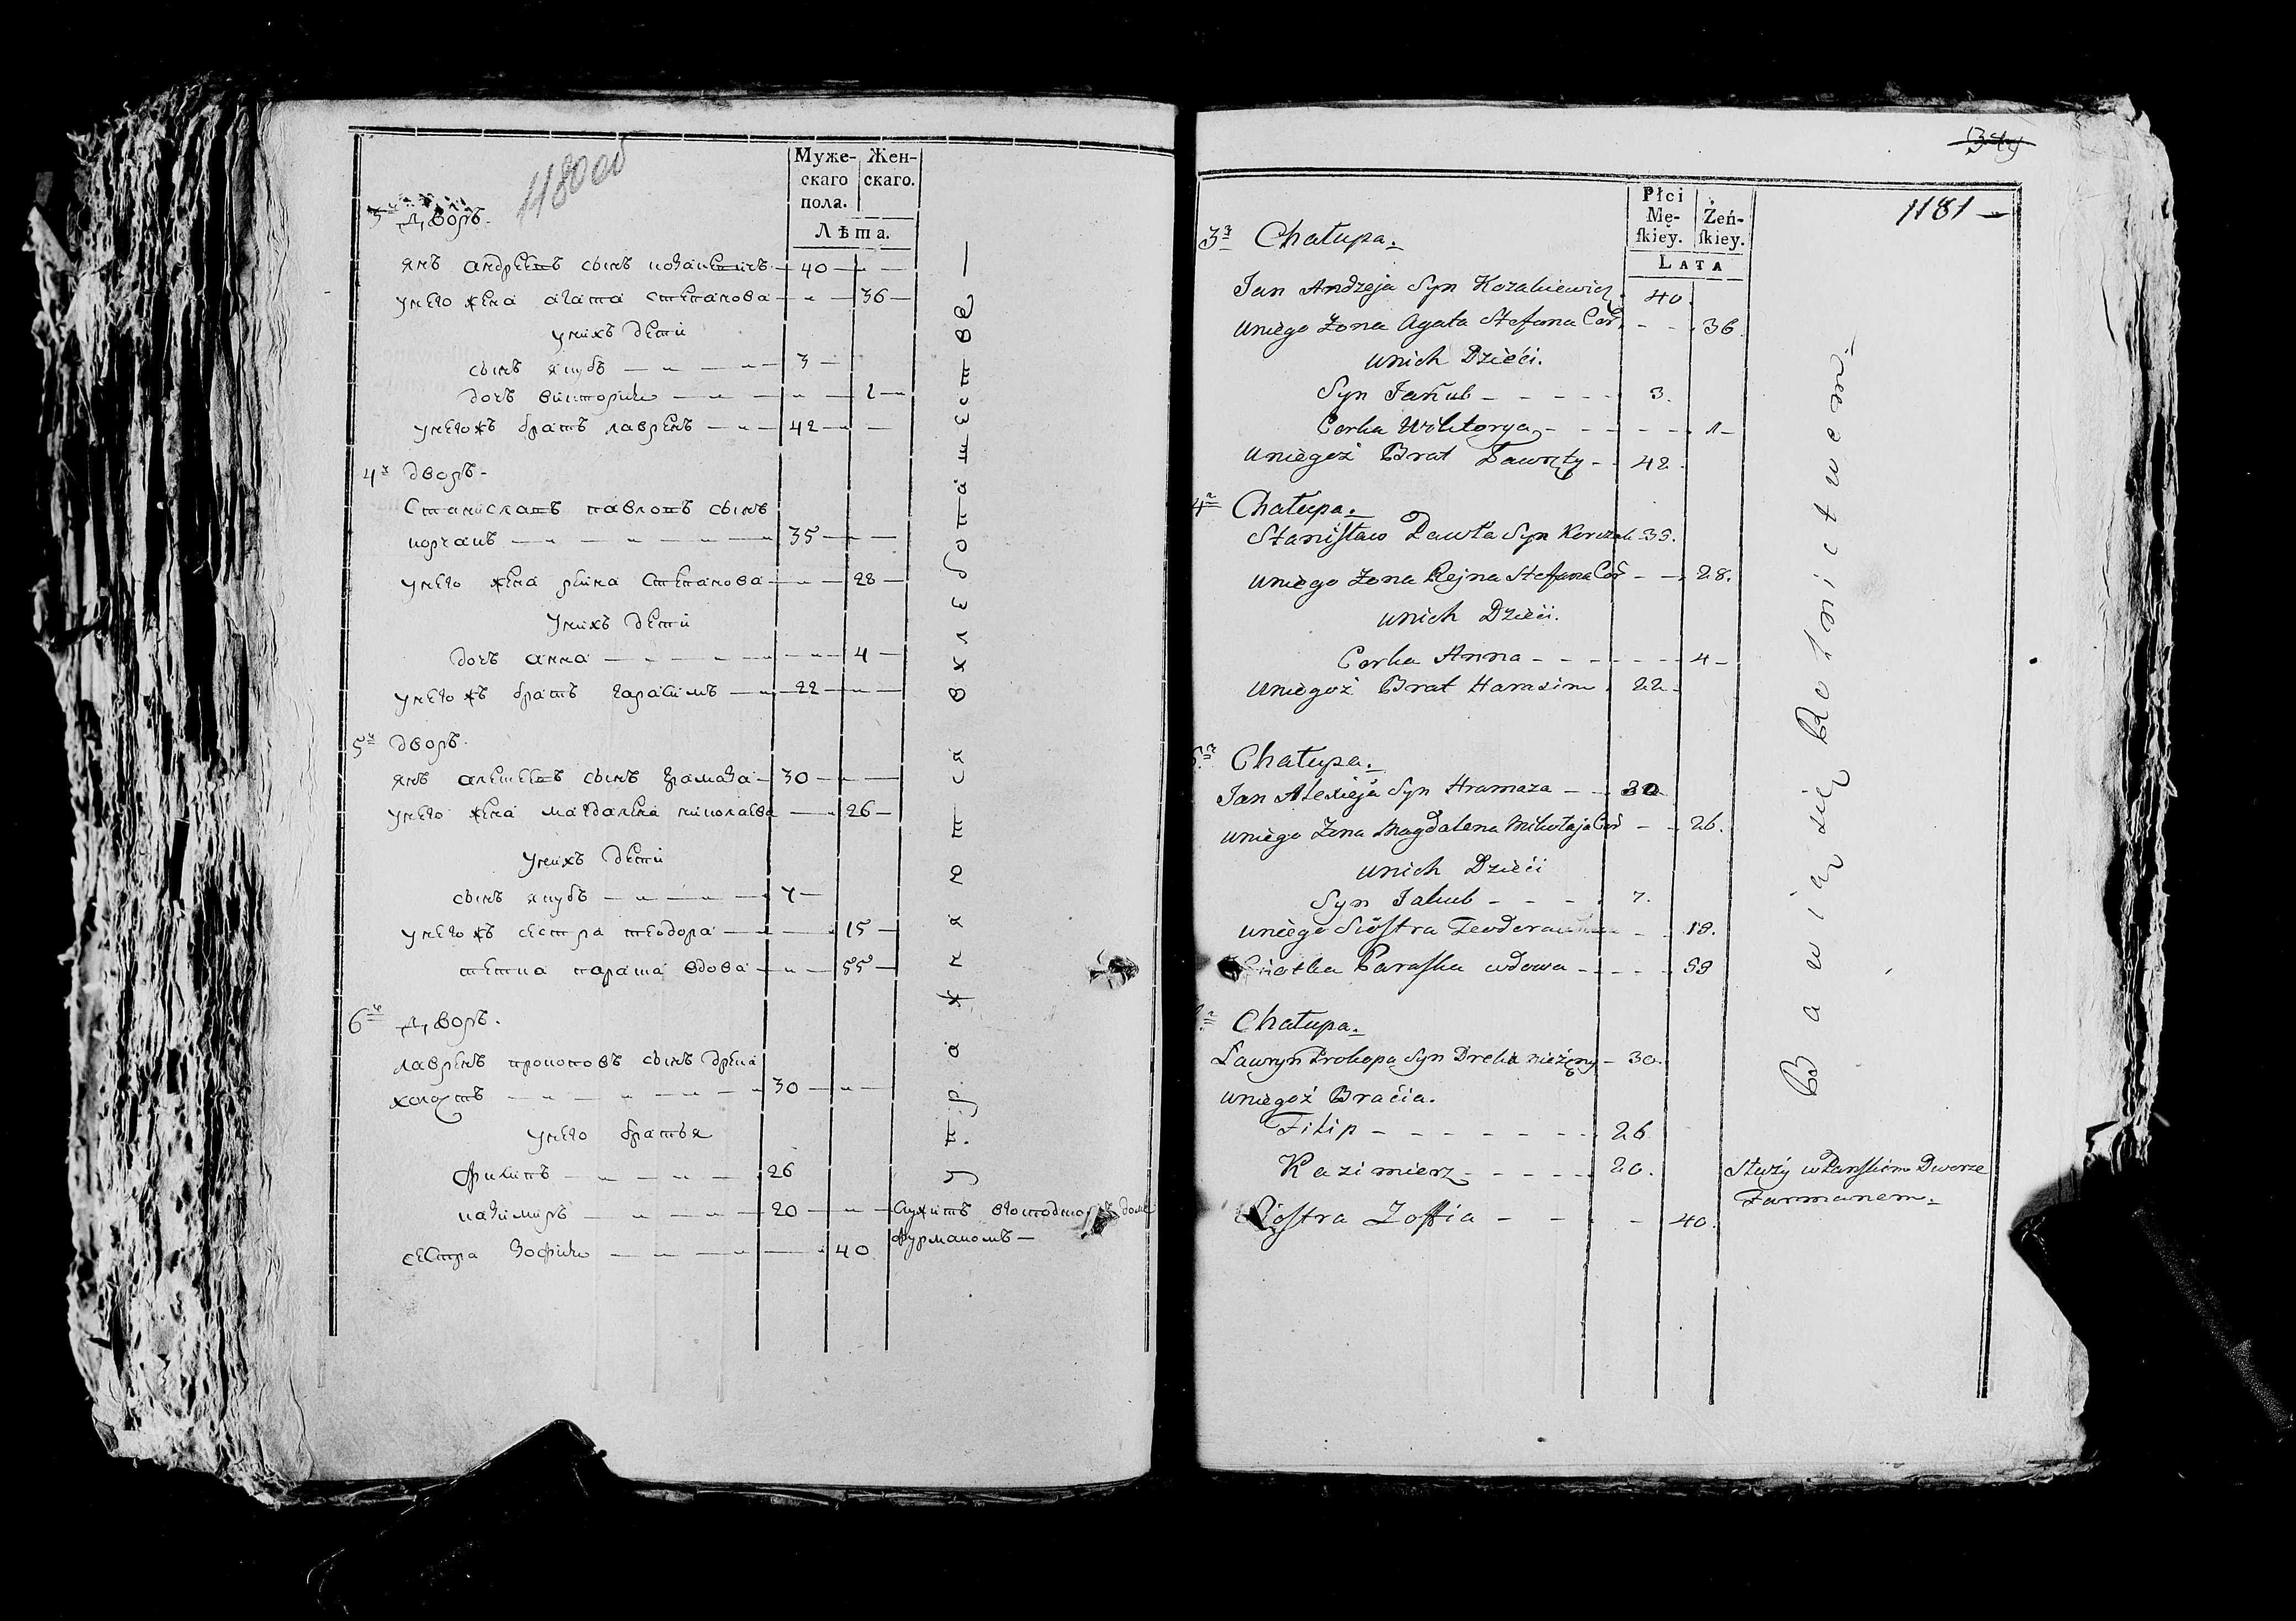 1180 об
Муже-
скаго
пола.
Жен-
скаго.
Лѣта.
3й Дворъ.
янъ андреевъ сынъ козакевичъ — 40 — " —
унего жена агата степанова — " — 36 —
унихъ дети
сынъ якубъ — " — " — 3 —
дочъ викторыя — " — " — 1 —
унегожъ братъ лавренъ — " — 42 — " —
4й дворъ.
Станиславъ павловъ сынъ
корчакъ — " — " — " — 35 — " —
унего жена рейна степанова — " — 28 —
унихъ дети
дочъ анна — " — " — " — 4 —
унегожъ братъ гарасимъ — 22 — " —
5й дворъ.
янъ алексеевъ сынъ грамаза — 30 — " —
унего жена магдалена николаева — " — 26 —
унихъ дети
сынъ якубъ — " — " — 7 —
унегожъ сестра теодора — " — 15 —
тетка параша вдова — " — 55 —
6й дворъ.
лавренъ прокоповъ сынъ дрека
холостъ — " — " — " — 30 — " —
унего братья
филипъ — " — " — 26
казимиръ — " — " — 20 — " — Служитъ вгосподскомъ доме
фурманомъ —
сестра зофия — " — " — 40
упражняются вхлебопашестве —
1181 —
Płci
Mę-
ſkiey.
Żeń-
ſkiey.
LATA
3a Chałupa.
Jan Andzeja Syn Kozakiewicz 40.
uniego Żona Agata Stefana Cor. - - 36.
unich Dzieći.
Syn Jakub - - - - - 3.
Corka Wiktorya - - - - - 1 -
uniegoż Brat Ławręty - 42.
4a Chałupa.
Stanisław Pawła Syn Korczak 35.
uniego Żona Rejna Stefana Cor - - 28.
unich Dzieći.
Corka Anna - - - - - - 4 -
uniegoż Brat Harasim 22.
5a Chałupa.
Jan Alexieja Syn Hramaza - - 30
uniego Żona Magdalena Mikołaja Cor - - 26.
unich Dzieći
Syn Jakub - - - - 7.
uniego Siostra Teodora - - 15.
Ciotka Paraska wdowa - - - - 55
Chałupa.
Ławryn Prokopa Syn Dreka nieżęny - 30.
uniegoż Bracia.
Filip - - - - - - 26
Kazimierz - - - - - 20. Służy w Pańskim Dworze
Furmanem.
Siostra Zoffia - - - - 40.
Bawią się Rolnictwem.